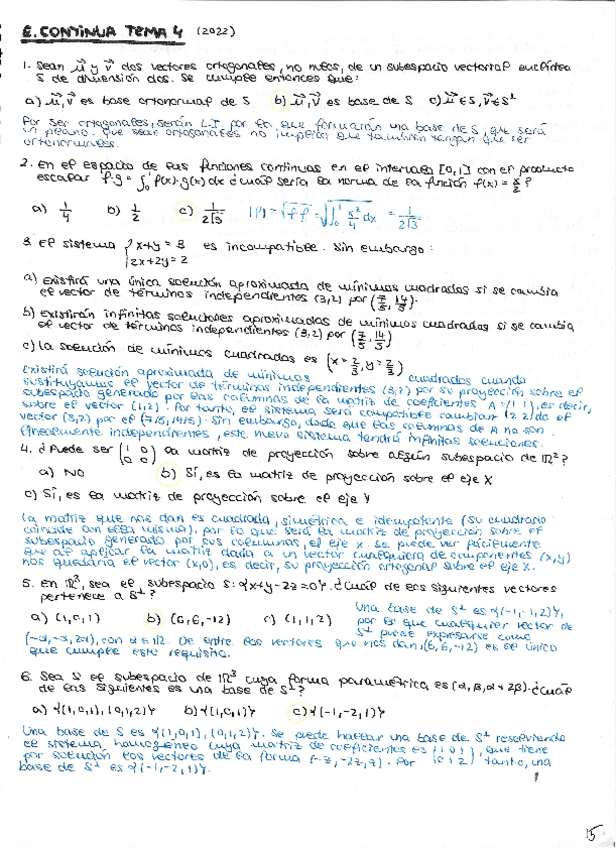 E. CONTINUA TEMA 4 (2022)
1. Sean u⃗ y v⃗ dos vectores ortogonales, no nulos, de un subespacio vectorial euclídeo
S de dimensión dos. Se cumple entonces que:
a) u⃗, v⃗ es base ortonormal de S b) u⃗, v⃗ es base de S c) u⃗ ∈ S, v⃗ ∈ S⊥
Por ser ortogonales, serán L.I. por lo que formarán una base de S, que será
un plano. Que sean ortogonales no implica que también tengan que ser
ortonormales.
2. En el espacio de las funciones continuas en el intervalo [0,1] con el producto
escalar f·g = ∫₀¹ f(x)·g(x) dx ¿cuál sería la norma de la función f(x) = x/2?
a) 1/4 b) 1/2 c) 1/(2√3) |f| = √(f·f) = √(∫₀¹ x²/4 dx) = 1/(2√3)
3. El sistema { x+y = 3 es incompatible. Sin embargo:
2x+2y = 2
a) Existirá una única solución aproximada de mínimos cuadrados si se cambia
el vector de términos independientes (3,2) por (7/5, 14/5).
b) Existirán infinitas soluciones aproximadas de mínimos cuadrados si se cambia
el vector de términos independientes (3,2) por (7/5, 14/5)
c) La solución de mínimos cuadrados es (x = 2/3, y = 2/3)
Existirá solución aproximada de mínimos cuadrados cuando
sustituyamos el vector de términos independientes (3,2) por su proyección sobre el
subespacio generado por las columnas de la matriz de coeficientes A = (1 1), es decir,
sobre el vector (1,2). Por tanto, el sistema será compatible cambiando (2 2) el
vector (3,2) por el (7/5, 14/5). Sin embargo, dado que las columnas de A no son
linealmente independientes, este nuevo sistema tendrá infinitas soluciones.
4. ¿Puede ser (1 0 / 0 0) la matriz de proyección sobre algún subespacio de ℝ²?
a) NO b) Sí, es la matriz de proyección sobre el eje X
c) Sí, es la matriz de proyección sobre el eje Y
La matriz que nos dan es cuadrada, simétrica e idempotente (su cuadrado
coincide con ella misma), por lo que será la matriz de proyección sobre el
subespacio generado por sus columnas, el eje x. Se puede ver fácilmente
que al aplicar la matriz dada a un vector cualquiera de componentes (x,y)
nos quedaría el vector (x,0), es decir, su proyección ortogonal sobre el eje X.
5. En ℝ³, sea el subespacio S: {x+y-2z=0}. ¿Cuál de los siguientes vectores
pertenece a S⊥?
a) (1,0,1) b) (6,6,-12) c) (1,1,2) Una base de S⊥ es {(-1,-1,2)},
por lo que cualquier vector de
S⊥ puede expresarse como
(-α,-α,2α), con α ∈ ℝ. De entre los vectores que nos dan, (6,6,-12) es el único
que cumple este requisito.
6. Sea S el subespacio de ℝ³ cuya forma paramétrica es (α, β, α+2β). ¿Cuál
de las siguientes es una base de S⊥?
a) {(1,0,1), (0,1,2)} b) {(1,0,1)} c) {(-1,-2,1)}
Una base de S es {(1,0,1), (0,1,2)}. Se puede hallar una base de S⊥ resolviendo
el sistema homogéneo cuya matriz de coeficientes es (1 0 1), que tiene
por solución los vectores de la forma (-z,-2z,z). Por (0 1 2) tanto, una
base de S⊥ es {(-1,-2,1)}.
15